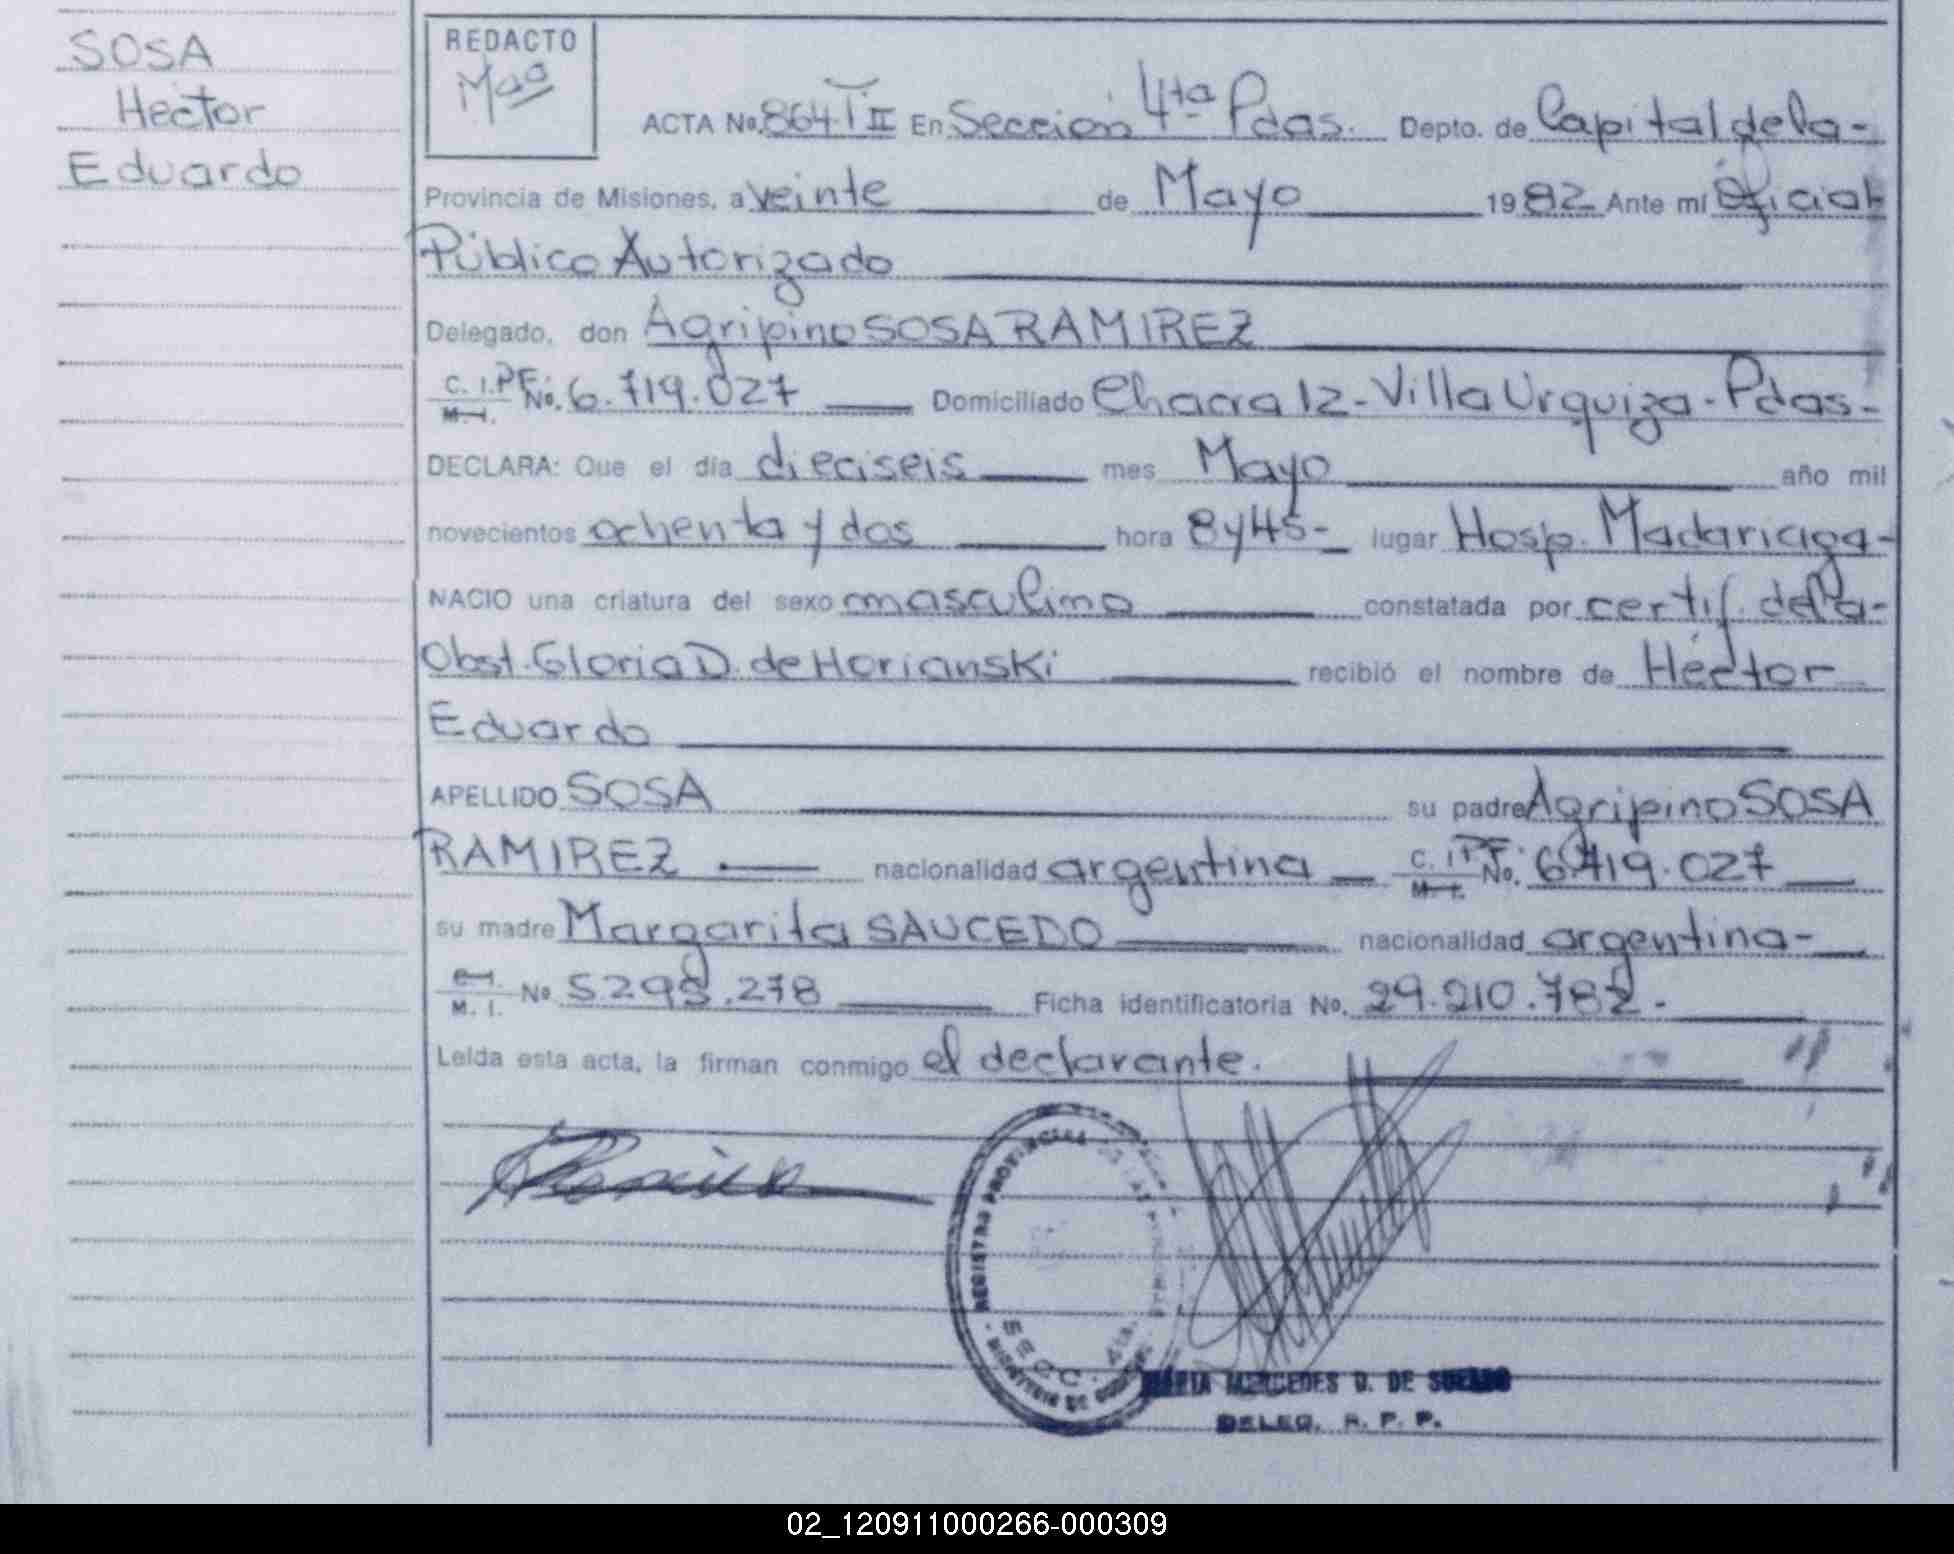 SOSA
Hector
Eduardo
REDACTO
ACTA No. 864 T II En Sección 4ta Pdas. Depto. de Capital de la-
Provincia de Misiones, a veinte de Mayo 1982 Ante mi Oficial
Público Autorizado
Delegado, don Agripino SOSA RAMIREZ
C. I. P.F. No. 6.719.027 Domiciliado Chacra 12- Villa Urquiza- Pdas-
M. I.
DECLARA: Que el día dieciseis mes Mayo año mil
novecientos ochenta y dos hora 8 y 45- lugar Hosp. Madariaga-
NACIO una criatura del sexo masculino constatada por certif. de la-
Obst. Gloria D. de Horianski recibió el nombre de Héctor
Eduardo
APELLIDO SOSA su padre Agripino SOSA
RAMIREZ nacionalidad argentina C. I. P.F. No. 6.719.027
M. I.
su madre Margarita SAUCEDO nacionalidad argentina-
C. I.
M. I. No 5.295.278 Ficha identificatoria No. 29.210.782-
Leída esta acta, la firman conmigo el declarante.
REGISTRO PROVINCIAL
SECC. 4ta.
MINISTERIO DE GOBIERNO
MARIA MERCEDES D. DE
DELEG. R. P. P.
02_120911000266-000309